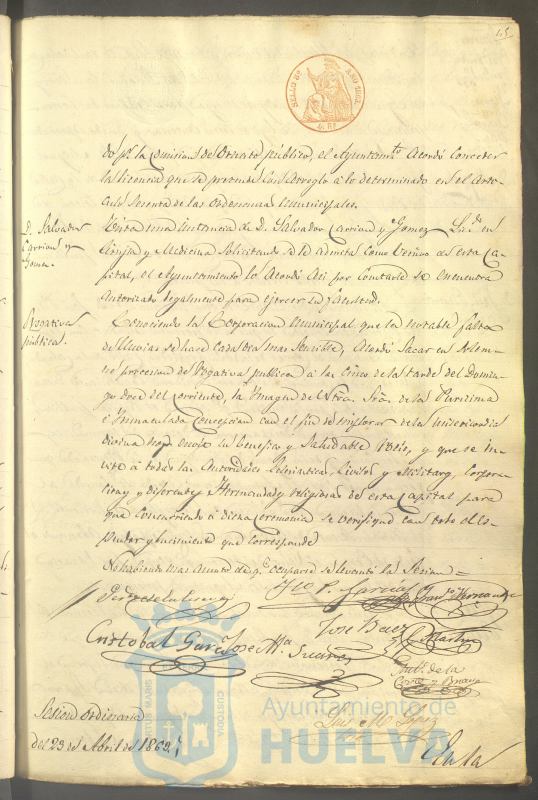 SELLO 9º AÑO 1862
do pr la Comision de Ornato publico, el Ayuntamto acordó conceder
la licencia que se pretende con arreglo a lo determinado en el Arti
culo Sesenta de las Ordenanzas Municipales.
D. Salvador
Carrion y
Gomez.
Vista una instancia de D. Salvador Carrion y Gomez Ldo. en
Cirujia y Medicina solicitando se le admita como vecino de esta Ca-
pital, el Ayuntamiento lo acordó asi por constarle se encuentra
autorizado legalmente para ejercer su facultad.
Rogativa
publica.
Conociendo la Corporacion Municipal que la notable falta
de lluvias se hace cada dia mas sensible, acordó sacar en solem-
ne procesion de Rogativa publica a las cinco de la tarde del Domin-
go doce del corriente, la Imagen de Ntra. Sra. de la Purisima
é Inmaculada Concepcion con el fin de implorar de la misericordia
Divina nos envie su benefico y saludable rocio, y que se in-
vite á todas las Autoridades Eclesiasticas, Civiles y Militares, Corpora-
ciones y diferentes Hermandades religiosas de esta Capital para
que concurriendo á dicha ceremonia se verifique con todo el es-
plendor y lucimiento que corresponde
No habiendo mas asunto de qe ocuparse se levantó la Sesion =
P. Garcia
Hernandez
Jose Baez
Martin
Cristobal Garcia
Jose Ma Suarez
de la
Corte y Bravo
Luis M. Lopez
Sesion ordinaria
del 23 de Abril de 1862
En la
Ayuntamiento de
HUELVA